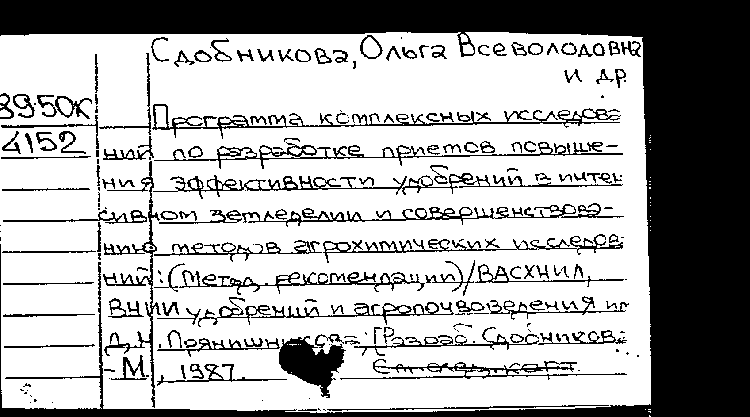 Сдобникова, Ольга Всеволодовна
и др.
3950к
4152
Программа комплексных исследова
ний по разработке приемов повыше-
ния эффективности удобрений в интен
сивном земледелии и совершенствова-
нию методов агрохимических исследова
ний: (Метод. рекомендации)/ВАСХНИЛ,
ВНИИ удобрений и агропочвоведения им
Д.Н. Прянишникова; [Разраб. Сдобникова
-М, 1987.